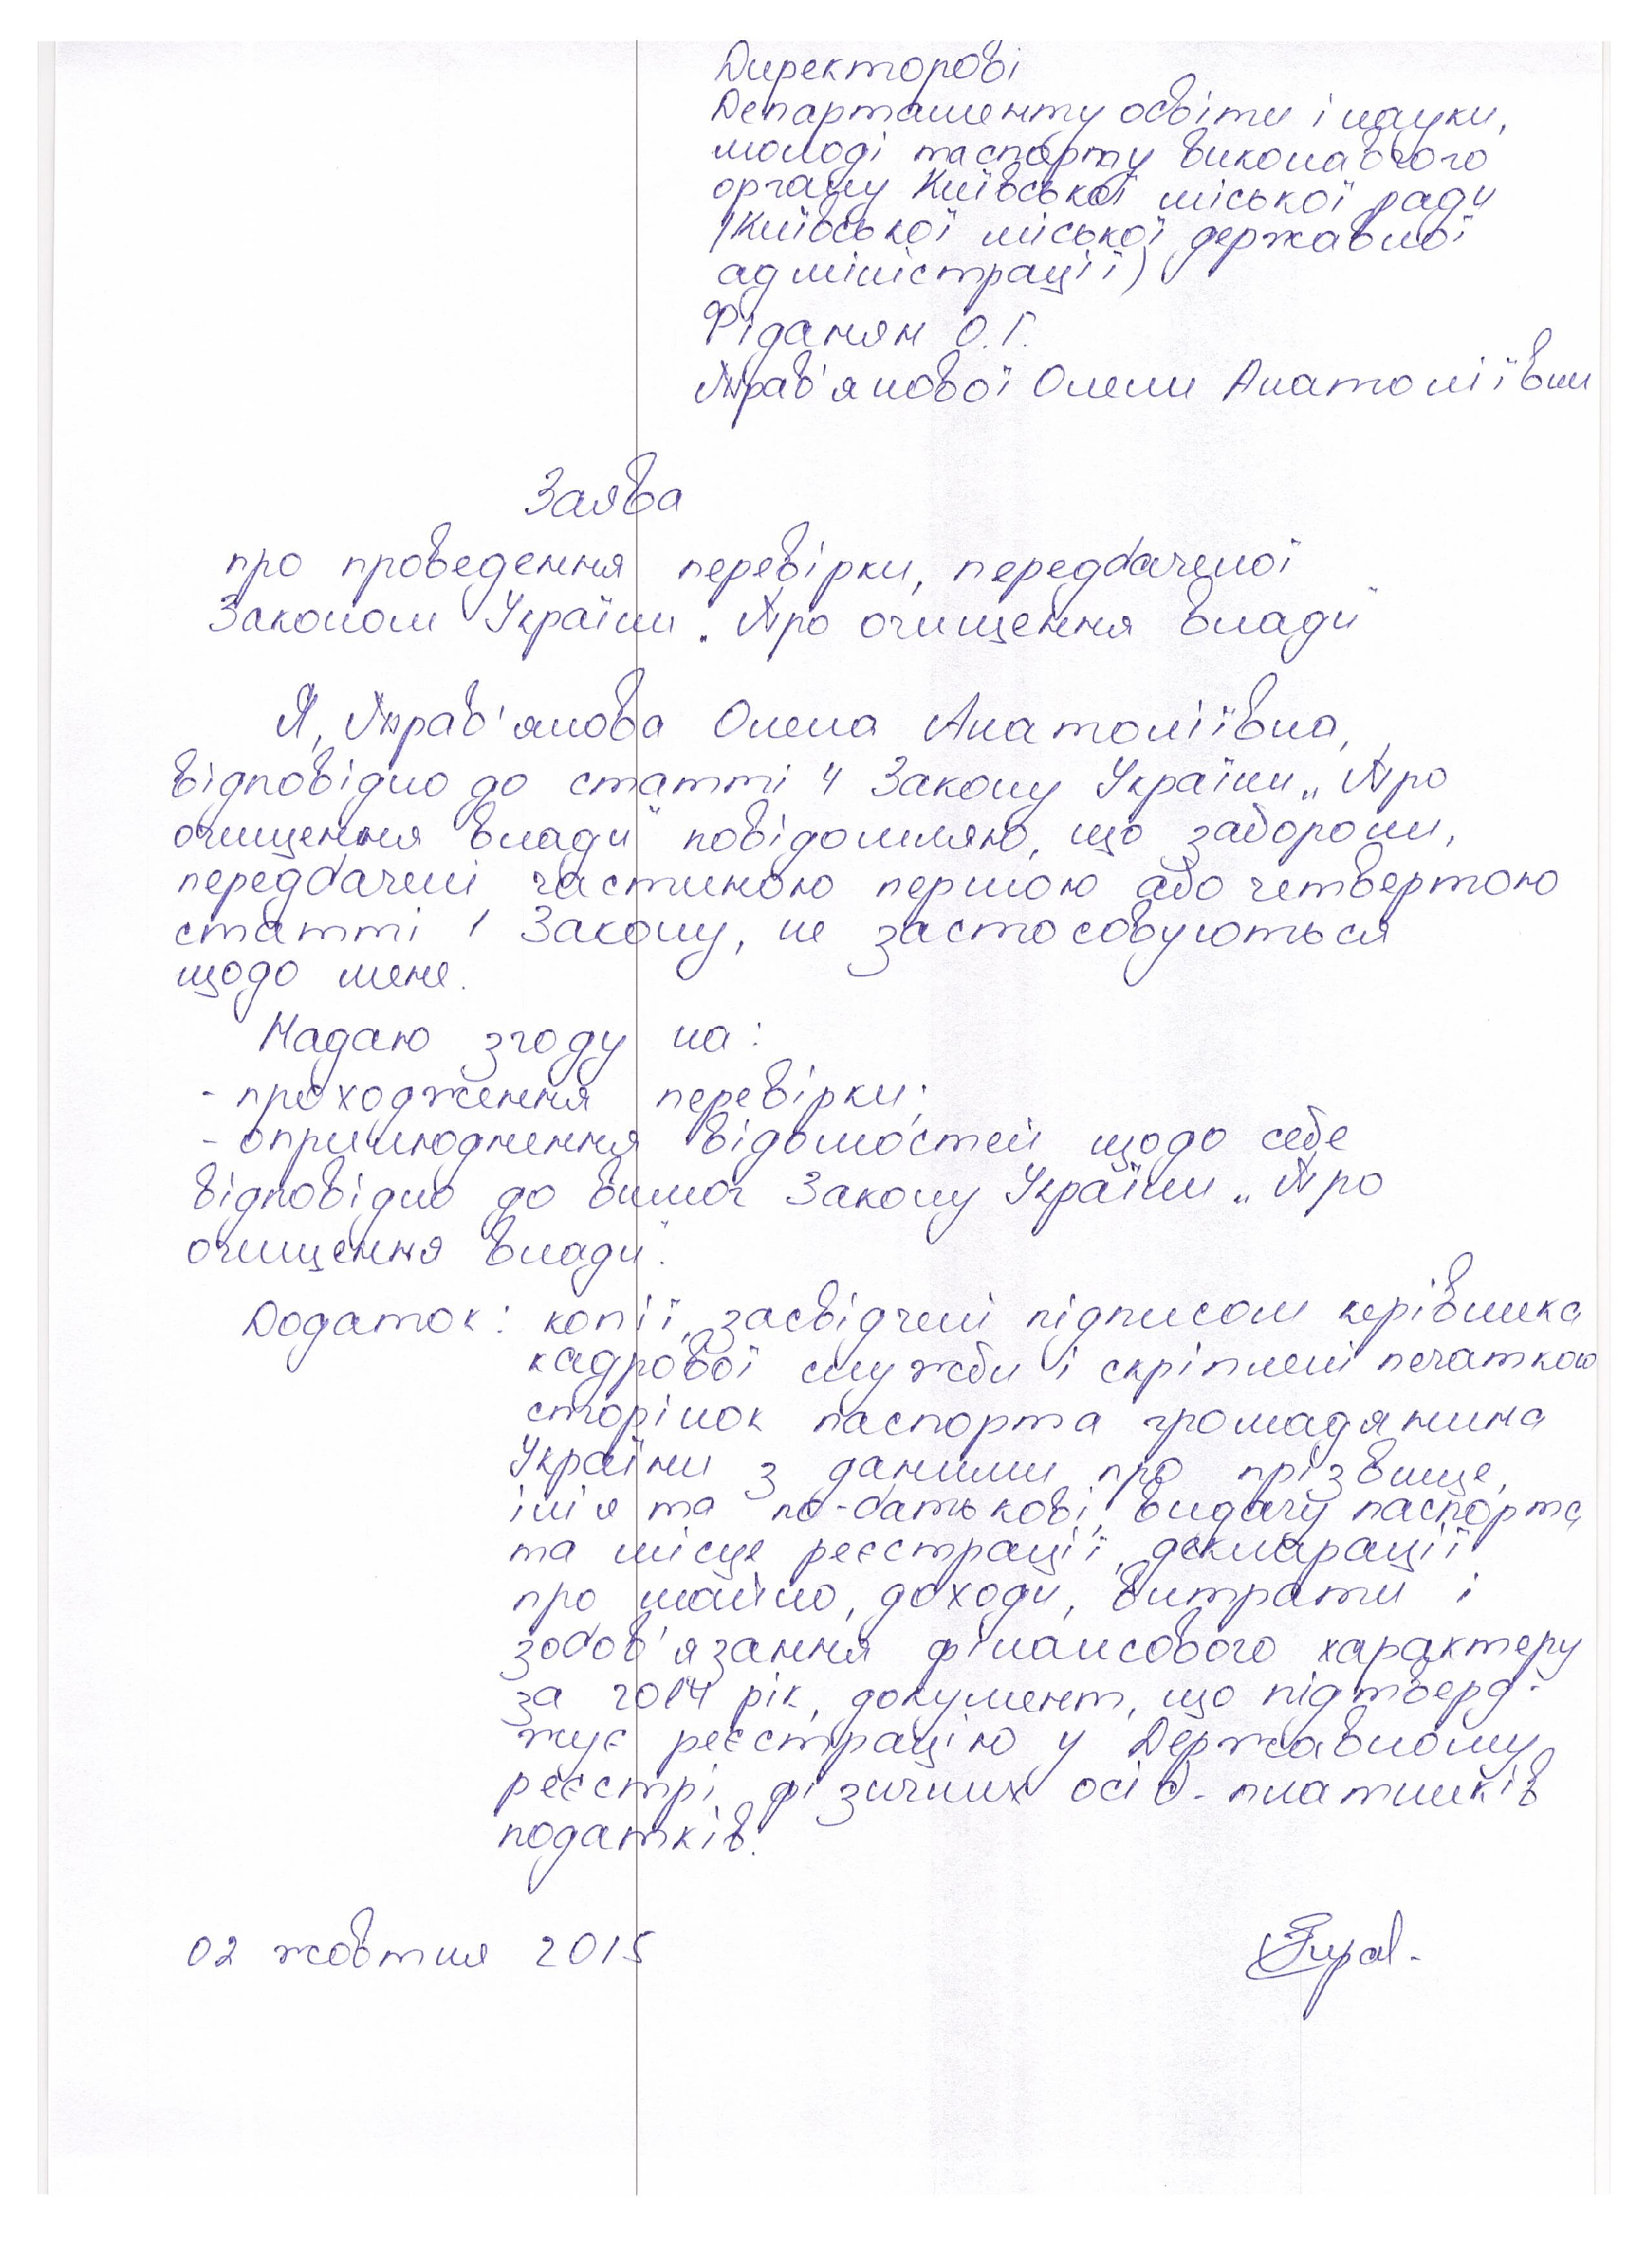 Директорові
Департаменту освіти і науки,
молоді та спорту виконавчого
органу Київської міської ради
(Київської міської державної
адміністрації)
Фіданян О.Г.
Прав'янової Олени Анатоліївни
Заява
про проведення перевірки, передбаченої
Законом України „Про очищення влади"
Я, Прав'янова Олена Анатоліївна,
відповідно до статті 4 Закону України „Про
очищення влади" повідомляю, що заборони,
передбачені частиною першою або четвертою
статті 1 Закону, не застосовуються
щодо мене.
Надаю згоду на:
- проходження перевірки;
- оприлюднення відомостей щодо себе
відповідно до вимог Закону України „Про
очищення влади".
Додаток: копії, засвідчені підписом керівника
кадрової служби і скріплені печаткою
сторінок паспорта громадянина
України з даними про прізвище,
ім'я та по-батькові, видачу паспорта
та місце реєстрації, декларації
про майно, доходи, витрати і
зобов'язання фінансового характеру
за 2014 рік, документ, що підтверд-
жує реєстрацію у Державному
реєстрі фізичних осіб - платників
податків.
02 жовтня 2015